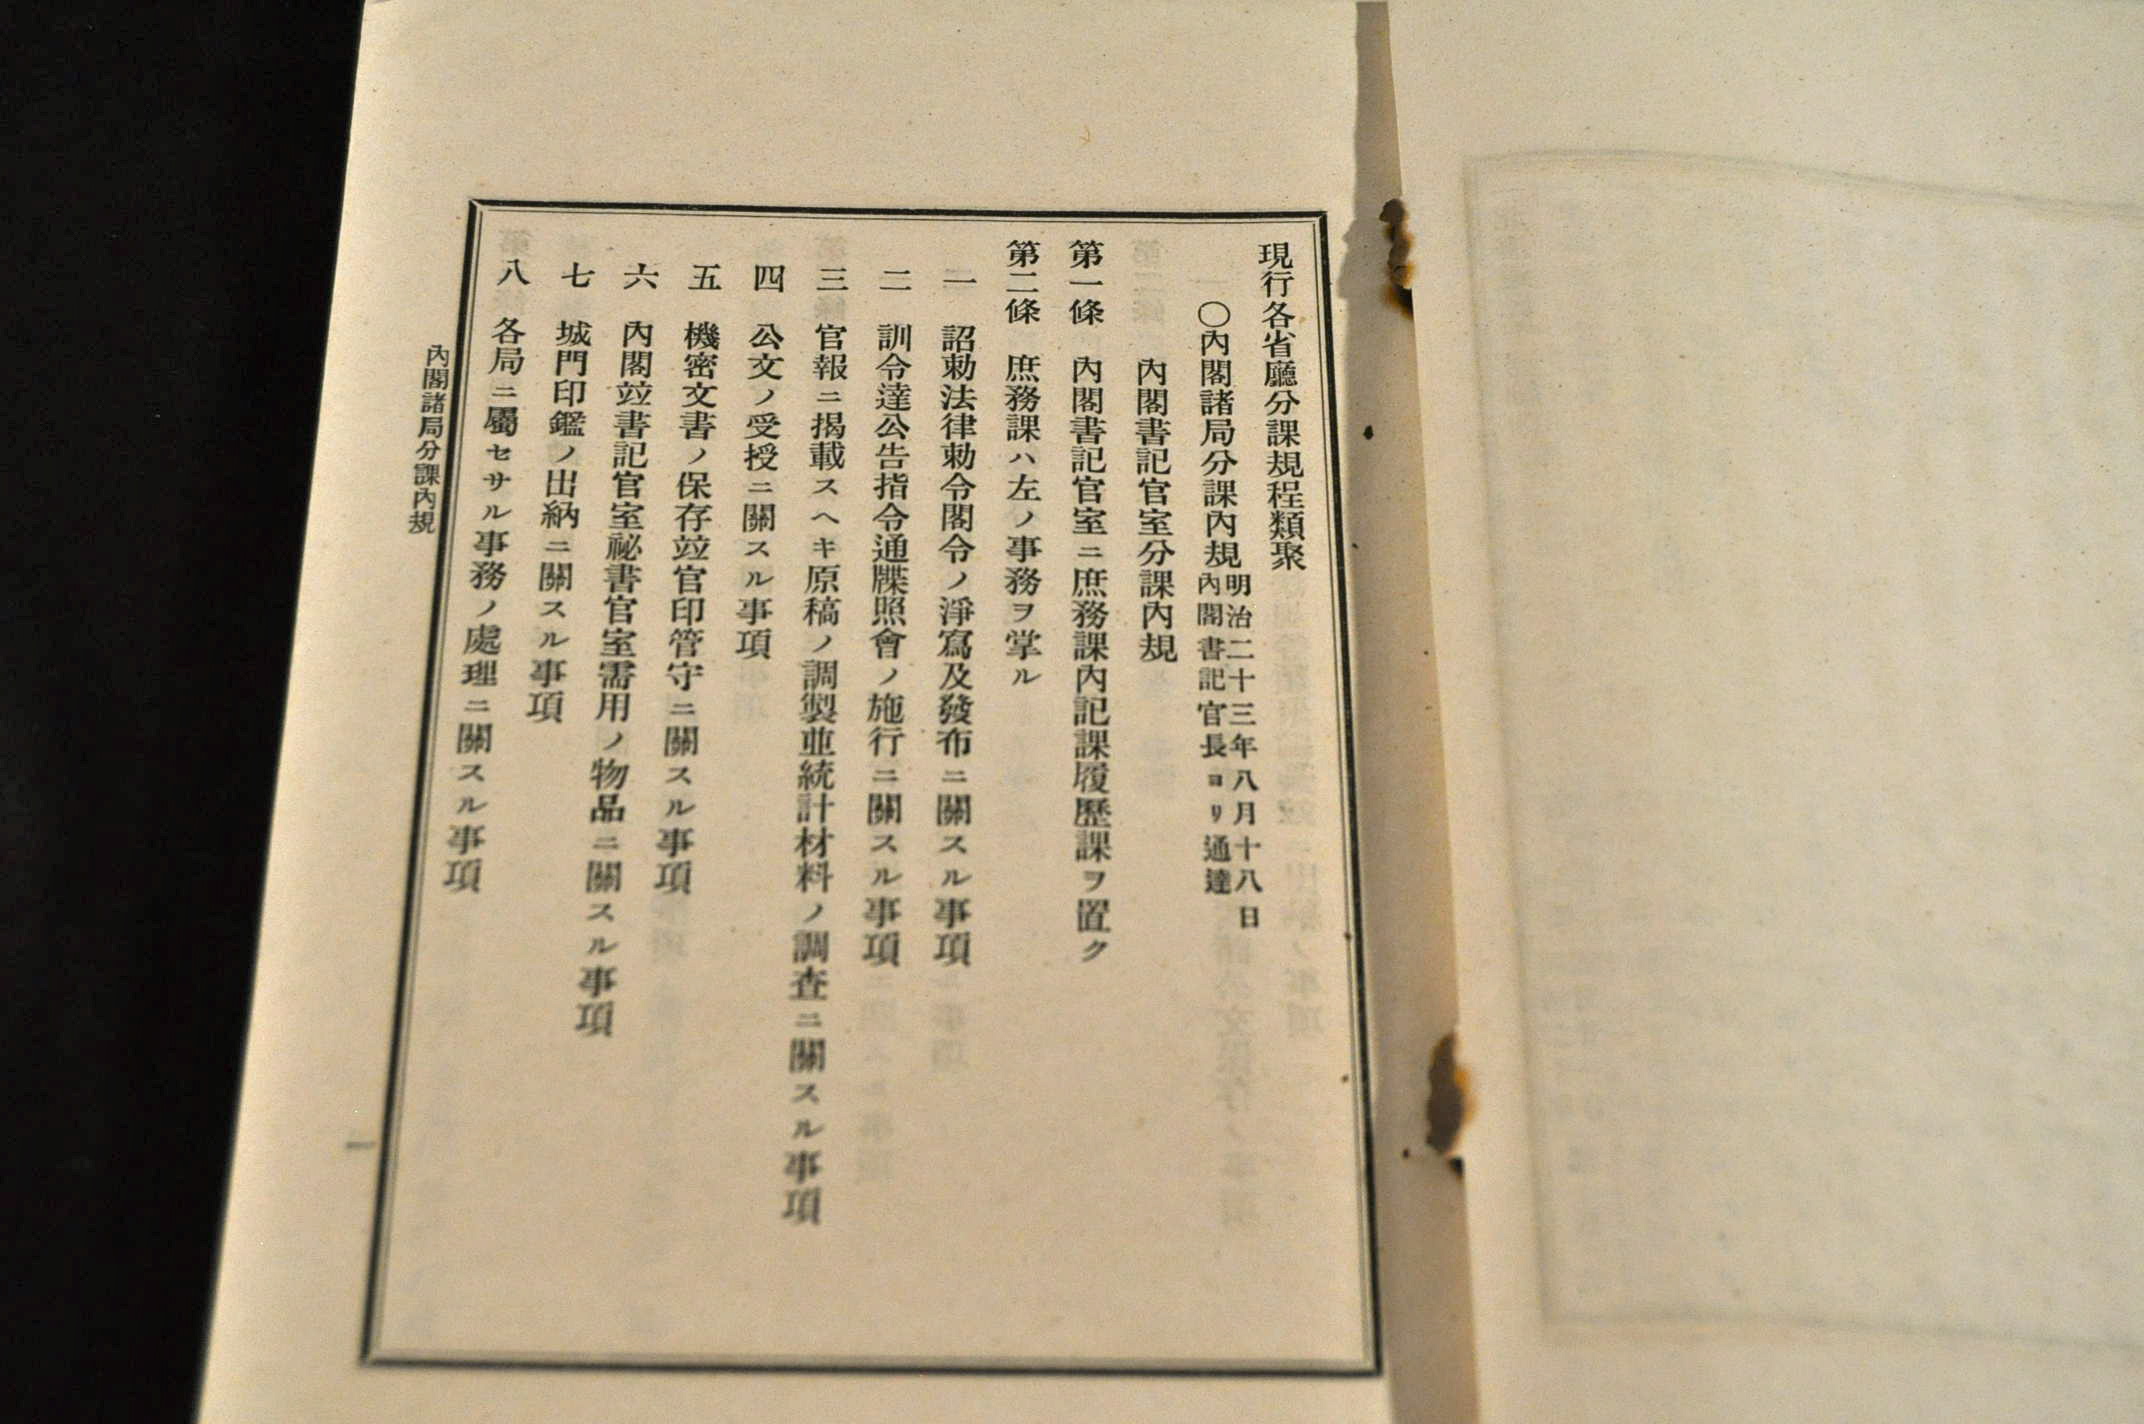 現行各省廳分課規程類聚
〇內閣諸局分課內規
明治二十三年八月十八日
內閣書記官長ヨリ通達
內閣書記官室分課內規
第一條　內閣書記官室ニ庶務課內記課履歷課ヲ置ク
第二條　庶務課ハ左ノ事務ヲ掌ル
一　詔勅法律勅令閣令ノ淨寫及發布ニ關スル事項
二　訓令達公告指令通牒照會ノ施行ニ關スル事項
三　官報ニ揭載スヘキ原稿ノ調製並統計材料ノ調查ニ關スル事項
四　公文ノ受授ニ關スル事項
五　機密文書ノ保存竝官印管守ニ關スル事項
六　內閣竝書記官室祕書官室需用ノ物品ニ關スル事項
七　城門印鑑ノ出納ニ關スル事項
八　各局ニ屬セサル事務ノ處理ニ關スル事項
內閣諸局分課內規
一